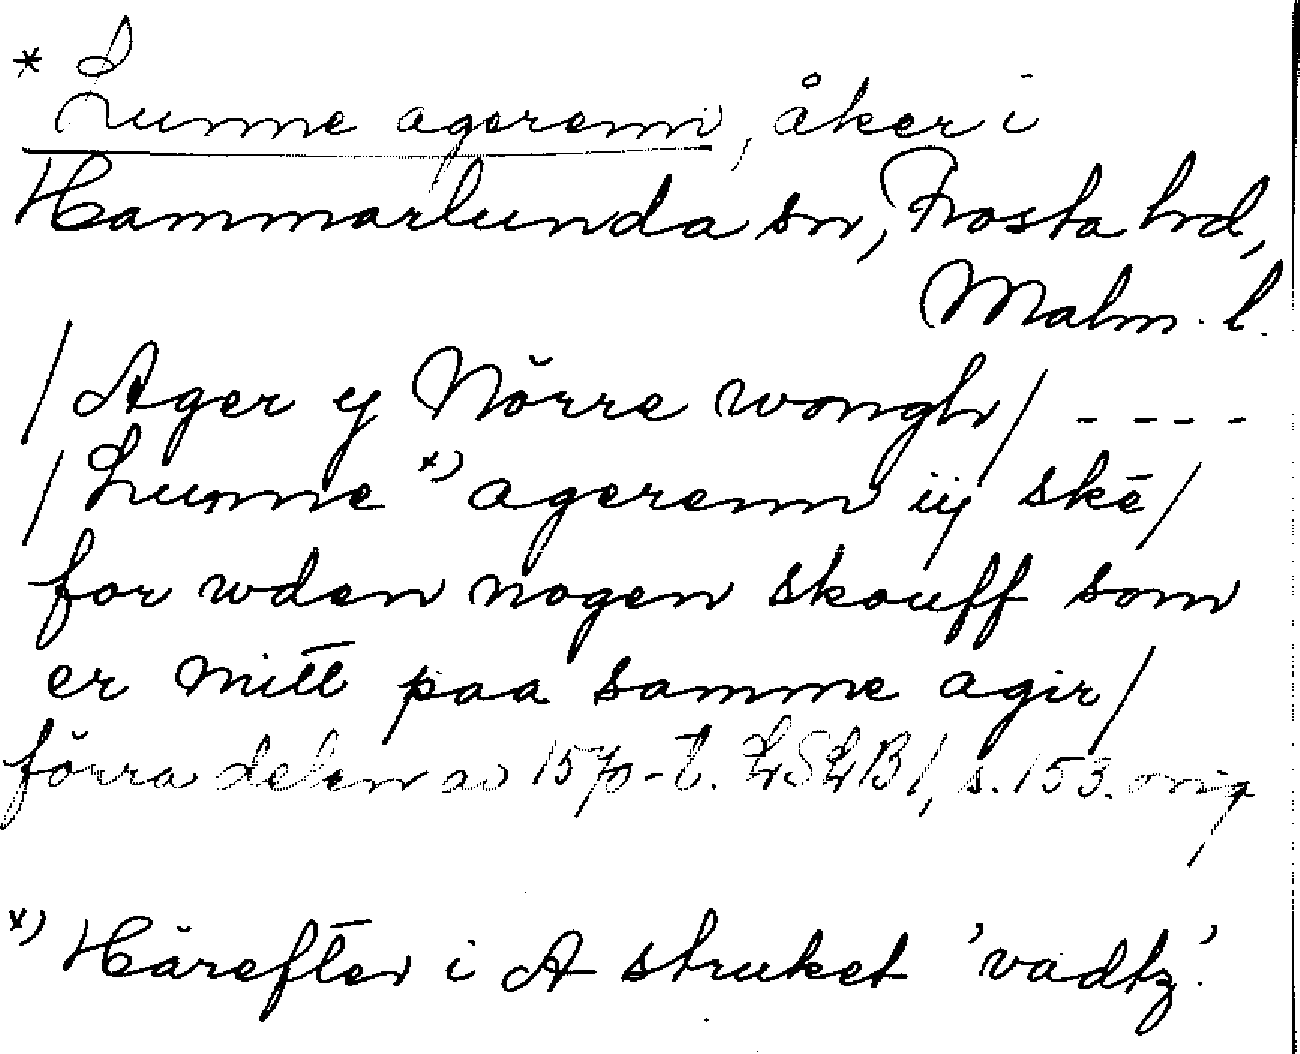 * Lunne agerenn, åker i
Hammarlunda sn, Frosta hd,
Malm. l.
/ Ager y Nörre wongh / - - - -
/ Lunne x) agerenn iij skē /
for wden nogen skouff som
er mitt paa samme agir /
förra delen av 1570-t. LSLB 1, s. 153. orig
x) Härefter i A struket 'vadtz'.